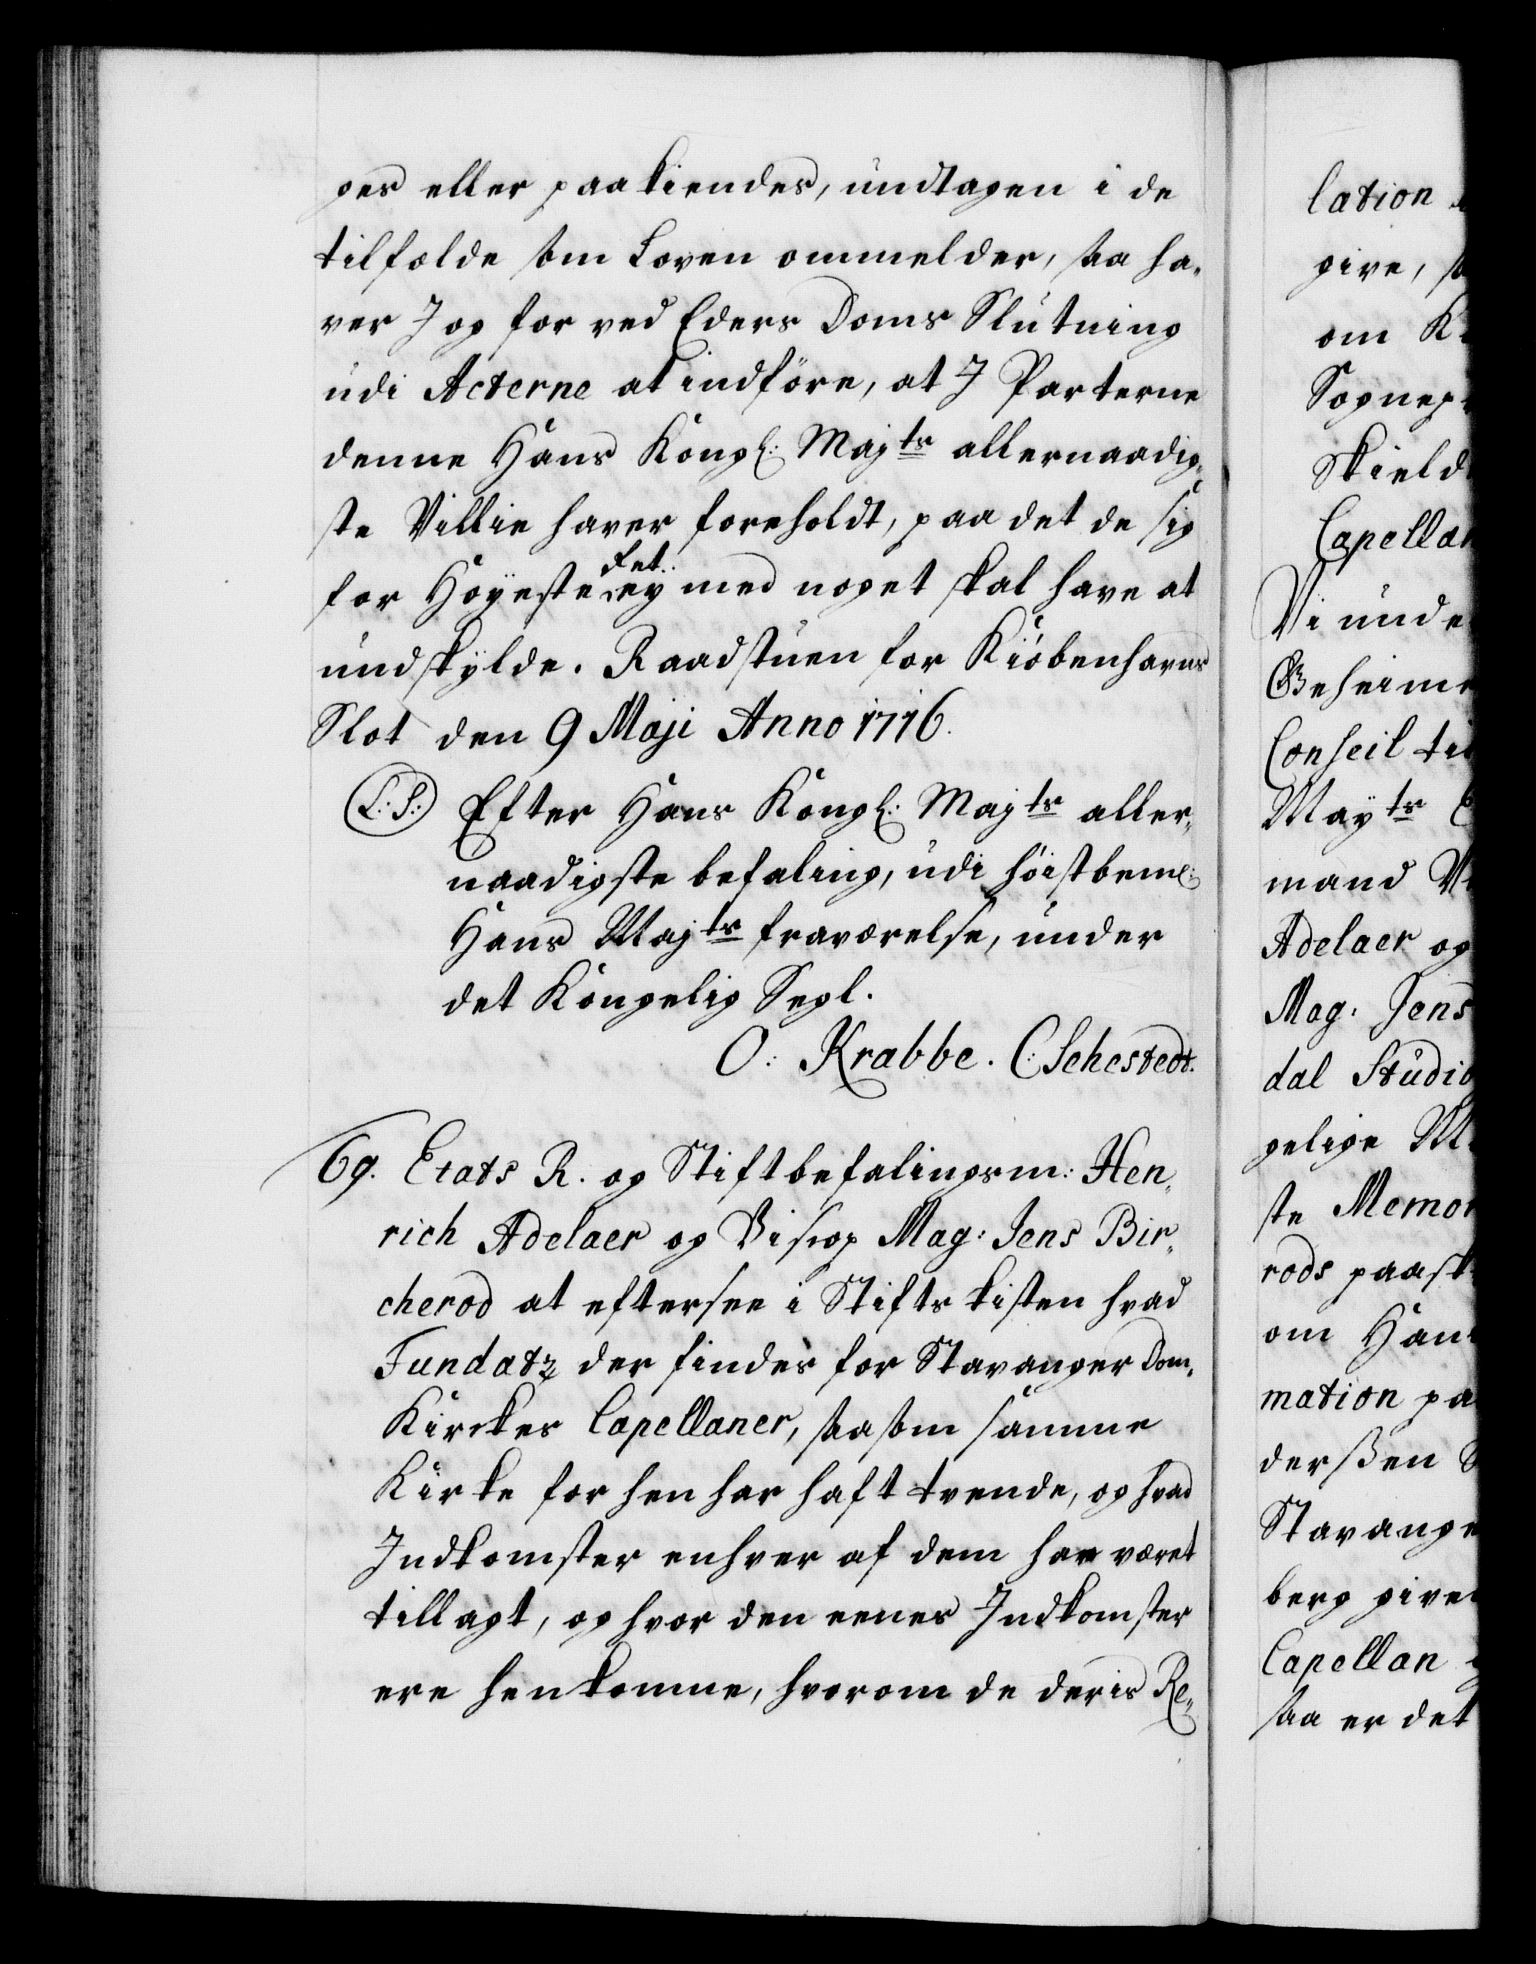 ges eller paakiendes, undtagen i de
tilfælde som Loven ommelder, saa ha-
ver I og for ved Eders Doms Slutning
udi Acterne at indföre, at I Parterne
denne Hans Kongl: Majts allernaadig-
ste Villie haver foreholdt, paa det de sig
for Höyeste Ret ey med noget skal have at
undskylde. Raadstuen for Kiöbenhavns
Slot den 9 Maji Anno 1716.
L: S: Efter Hans Kongl: Majts aller-
naadigste befaling, udi höistbeml:
Hans Majts fraværelse, under
det Kongelig Segl.
O: Krabbe. C: Sehestedt.
69. Etats R. og Stiftbefalingsm: Hen-
rich Adelaer og Biscop Mag: Jens Bir-
cherod at eftersee i Stifts kisten hvad
Fundatz der findes for Stavanger Dom-
Kirckes Capellaner, saasom samme
Kirke forhen har haft tvende, og hvad
Indkomster enhver af dem har været
tillagt, og hvor den eenes Indkomster
ere henkomne, hvorom de deris Re-
lation
give,
om
Sognep
Skield
Capellan
Vi unde
Geheime
Conseil til
Mayts
mand
Adelaer og
Mag: Jens
dal Studio
gelige
ste Memor
rods paask
om Hans
mation pa
derßen
Stavange
berg given
Capellan
saa er det